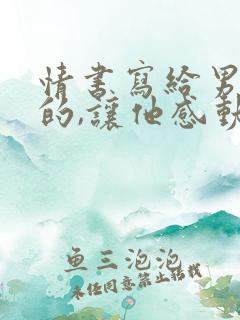 情書寫給男
的,讓他感動
鱼三泡泡
未经同意禁止转载